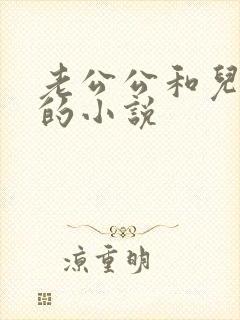 老公公和兒
的小説
凉重明